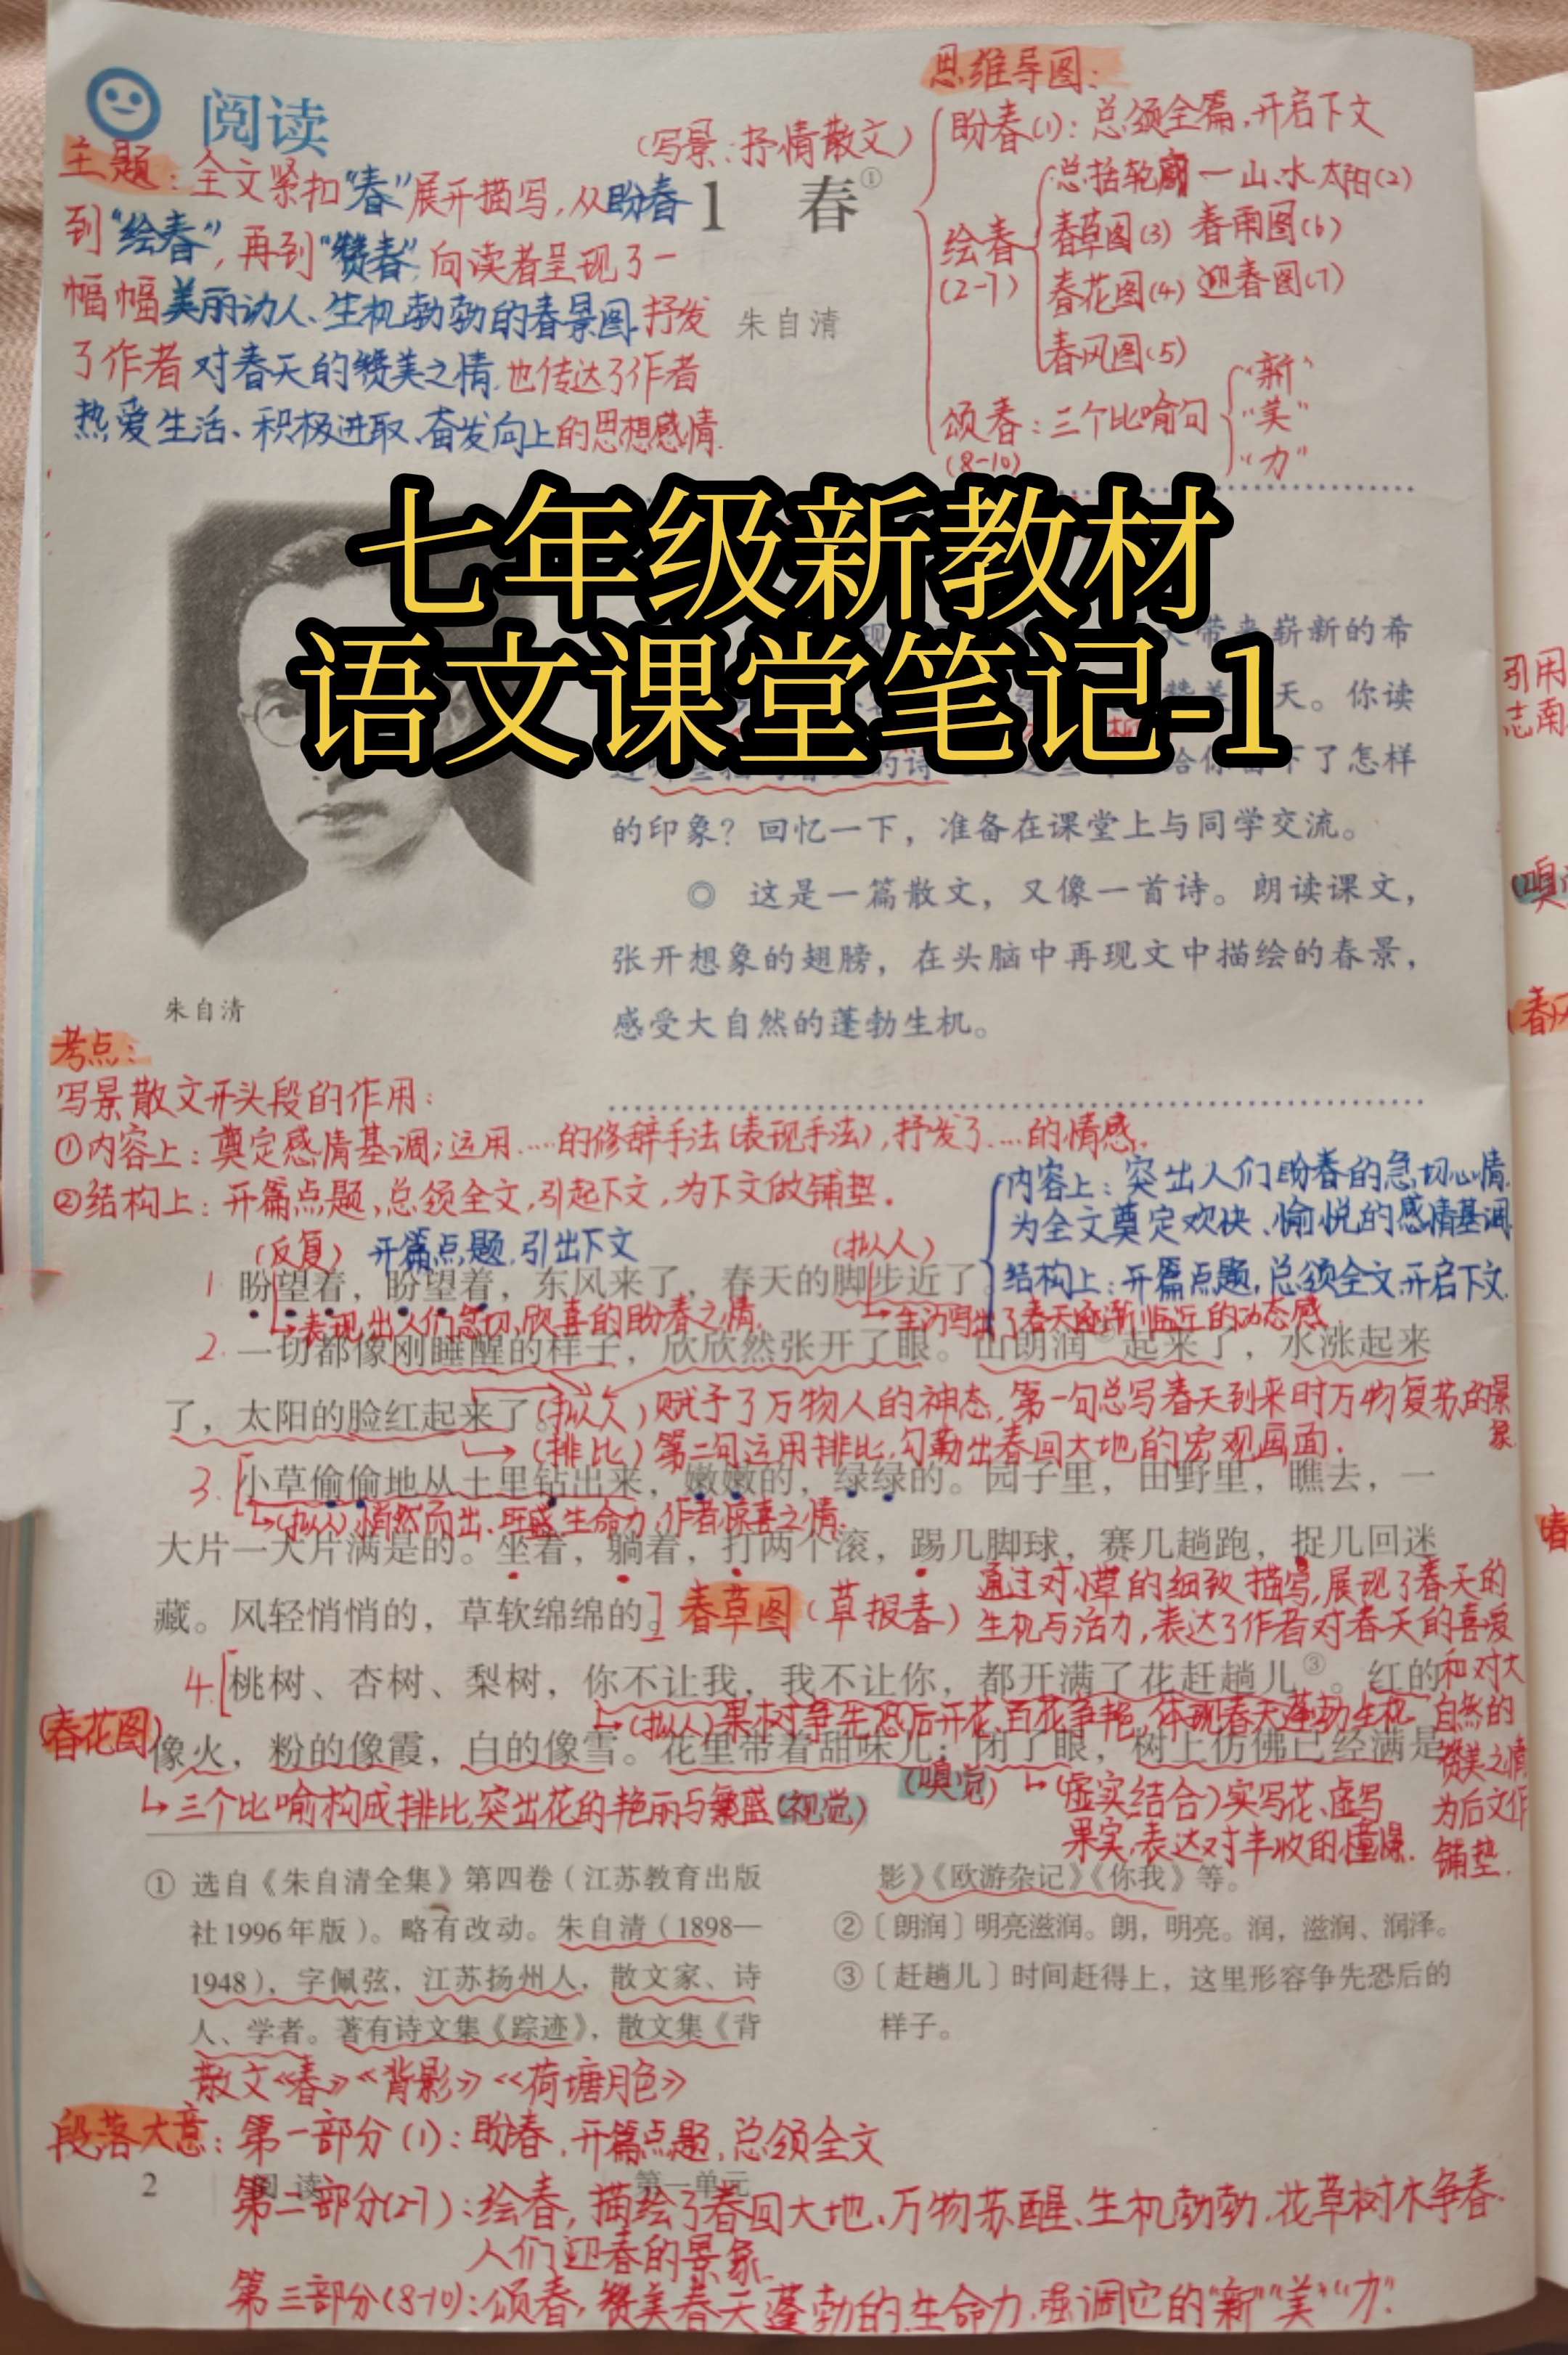 思维导图:
阅读
(写景:抒情散文)
盼春(1):总领全篇,开启下文
主题:全文紧扣“春”展开描写,从盼春
1 春①
总括轮廓—山、水、太阳(2)
到“绘春”,再到“赞春”,向读者呈现了一
绘春
(2-7)
春草图(3) 春雨图(6)
幅幅美丽动人、生机勃勃的春景图.抒发
朱自清
春花图(4) 迎春图(7)
了作者对春天的赞美之情.也传达了作者
春风图(5)
热爱生活、积极进取、奋发向上的思想感情.
颂春:三个比喻句
(8-10)
“新”
“美”
“力”
七年级新教材
语文课堂笔记-1
带来崭新的希
天。你读
的诗
给你留下了怎样
的印象?回忆一下,准备在课堂上与同学交流。
◎ 这是一篇散文,又像一首诗。朗读课文,
张开想象的翅膀,在头脑中再现文中描绘的春景,
感受大自然的蓬勃生机。
朱自清
考点:
写景散文开头段的作用:
①内容上:奠定感情基调;运用……的修辞手法(表现手法),抒发了……的情感.
②结构上:开篇点题,总领全文,引起下文,为下文做铺垫.
内容上:突出人们盼春的急切心情,
为全文奠定欢快、愉悦的感情基调
结构上:开篇点题,总领全文,开启下文.
(反复) 开篇点题.引出下文
(拟人)
1 盼望着,盼望着,东风来了,春天的脚步近了
表现出人们急切、欣喜的盼春之情.
生动写出了春天逐渐临近的动态感
2. 一切都像刚睡醒的样子,欣欣然张开了眼。山朗润起来了,水涨起来
了,太阳的脸红起来了。
(拟人)赋予了万物人的神态,第一句总写春天到来时万物复苏的景象
(排比)第二句运用排比,勾勒出春回大地的宏观画面.
3. 小草偷偷地从土里钻出来,嫩嫩的,绿绿的。园子里,田野里,瞧去,一
(拟人)悄然而出、旺盛生命力,作者惊喜之情.
大片一大片满是的。坐着,躺着,打两个滚,踢几脚球,赛几趟跑,捉几回迷
藏。风轻悄悄的,草软绵绵的。
春草图(草报春)
通过对小草的细致描写,展现了春天的
生机与活力,表达了作者对春天的喜爱
和对大
自然的
赞美之情
为后文作
铺垫.
4. 桃树、杏树、梨树,你不让我,我不让你,都开满了花赶趟儿③。红的
(拟人)果树争先恐后开花、百花争艳,体现春天蓬勃生机
(春花图)
像火,粉的像霞,白的像雪。花里带着甜味儿;闭了眼,树上仿佛已经满是
三个比喻构成排比,突出花的艳丽与繁盛(视觉)
(嗅觉)
(虚实结合)实写花、虚写
果实,表达对丰收的憧憬.
① 选自《朱自清全集》第四卷(江苏教育出版
社1996年版)。略有改动。朱自清(1898—
1948),字佩弦,江苏扬州人,散文家、诗
人、学者。著有诗文集《踪迹》,散文集《背
影》《欧游杂记》《你我》等。
②〔朗润〕明亮滋润。朗,明亮。润,滋润、润泽。
③〔赶趟儿〕时间赶得上,这里形容争先恐后的
样子。
散文《春》《背影》《荷塘月色》
段落大意:第一部分(1):盼春,开篇点题,总领全文
2 阅读 第一单元
第二部分(2-7):绘春,描绘了春回大地、万物苏醒、生机勃勃,花草树木争春.
人们迎春的景象.
第三部分(8-10):颂春,赞美春天蓬勃的生命力.强调它的“新”“美”“力”.
引用
志南